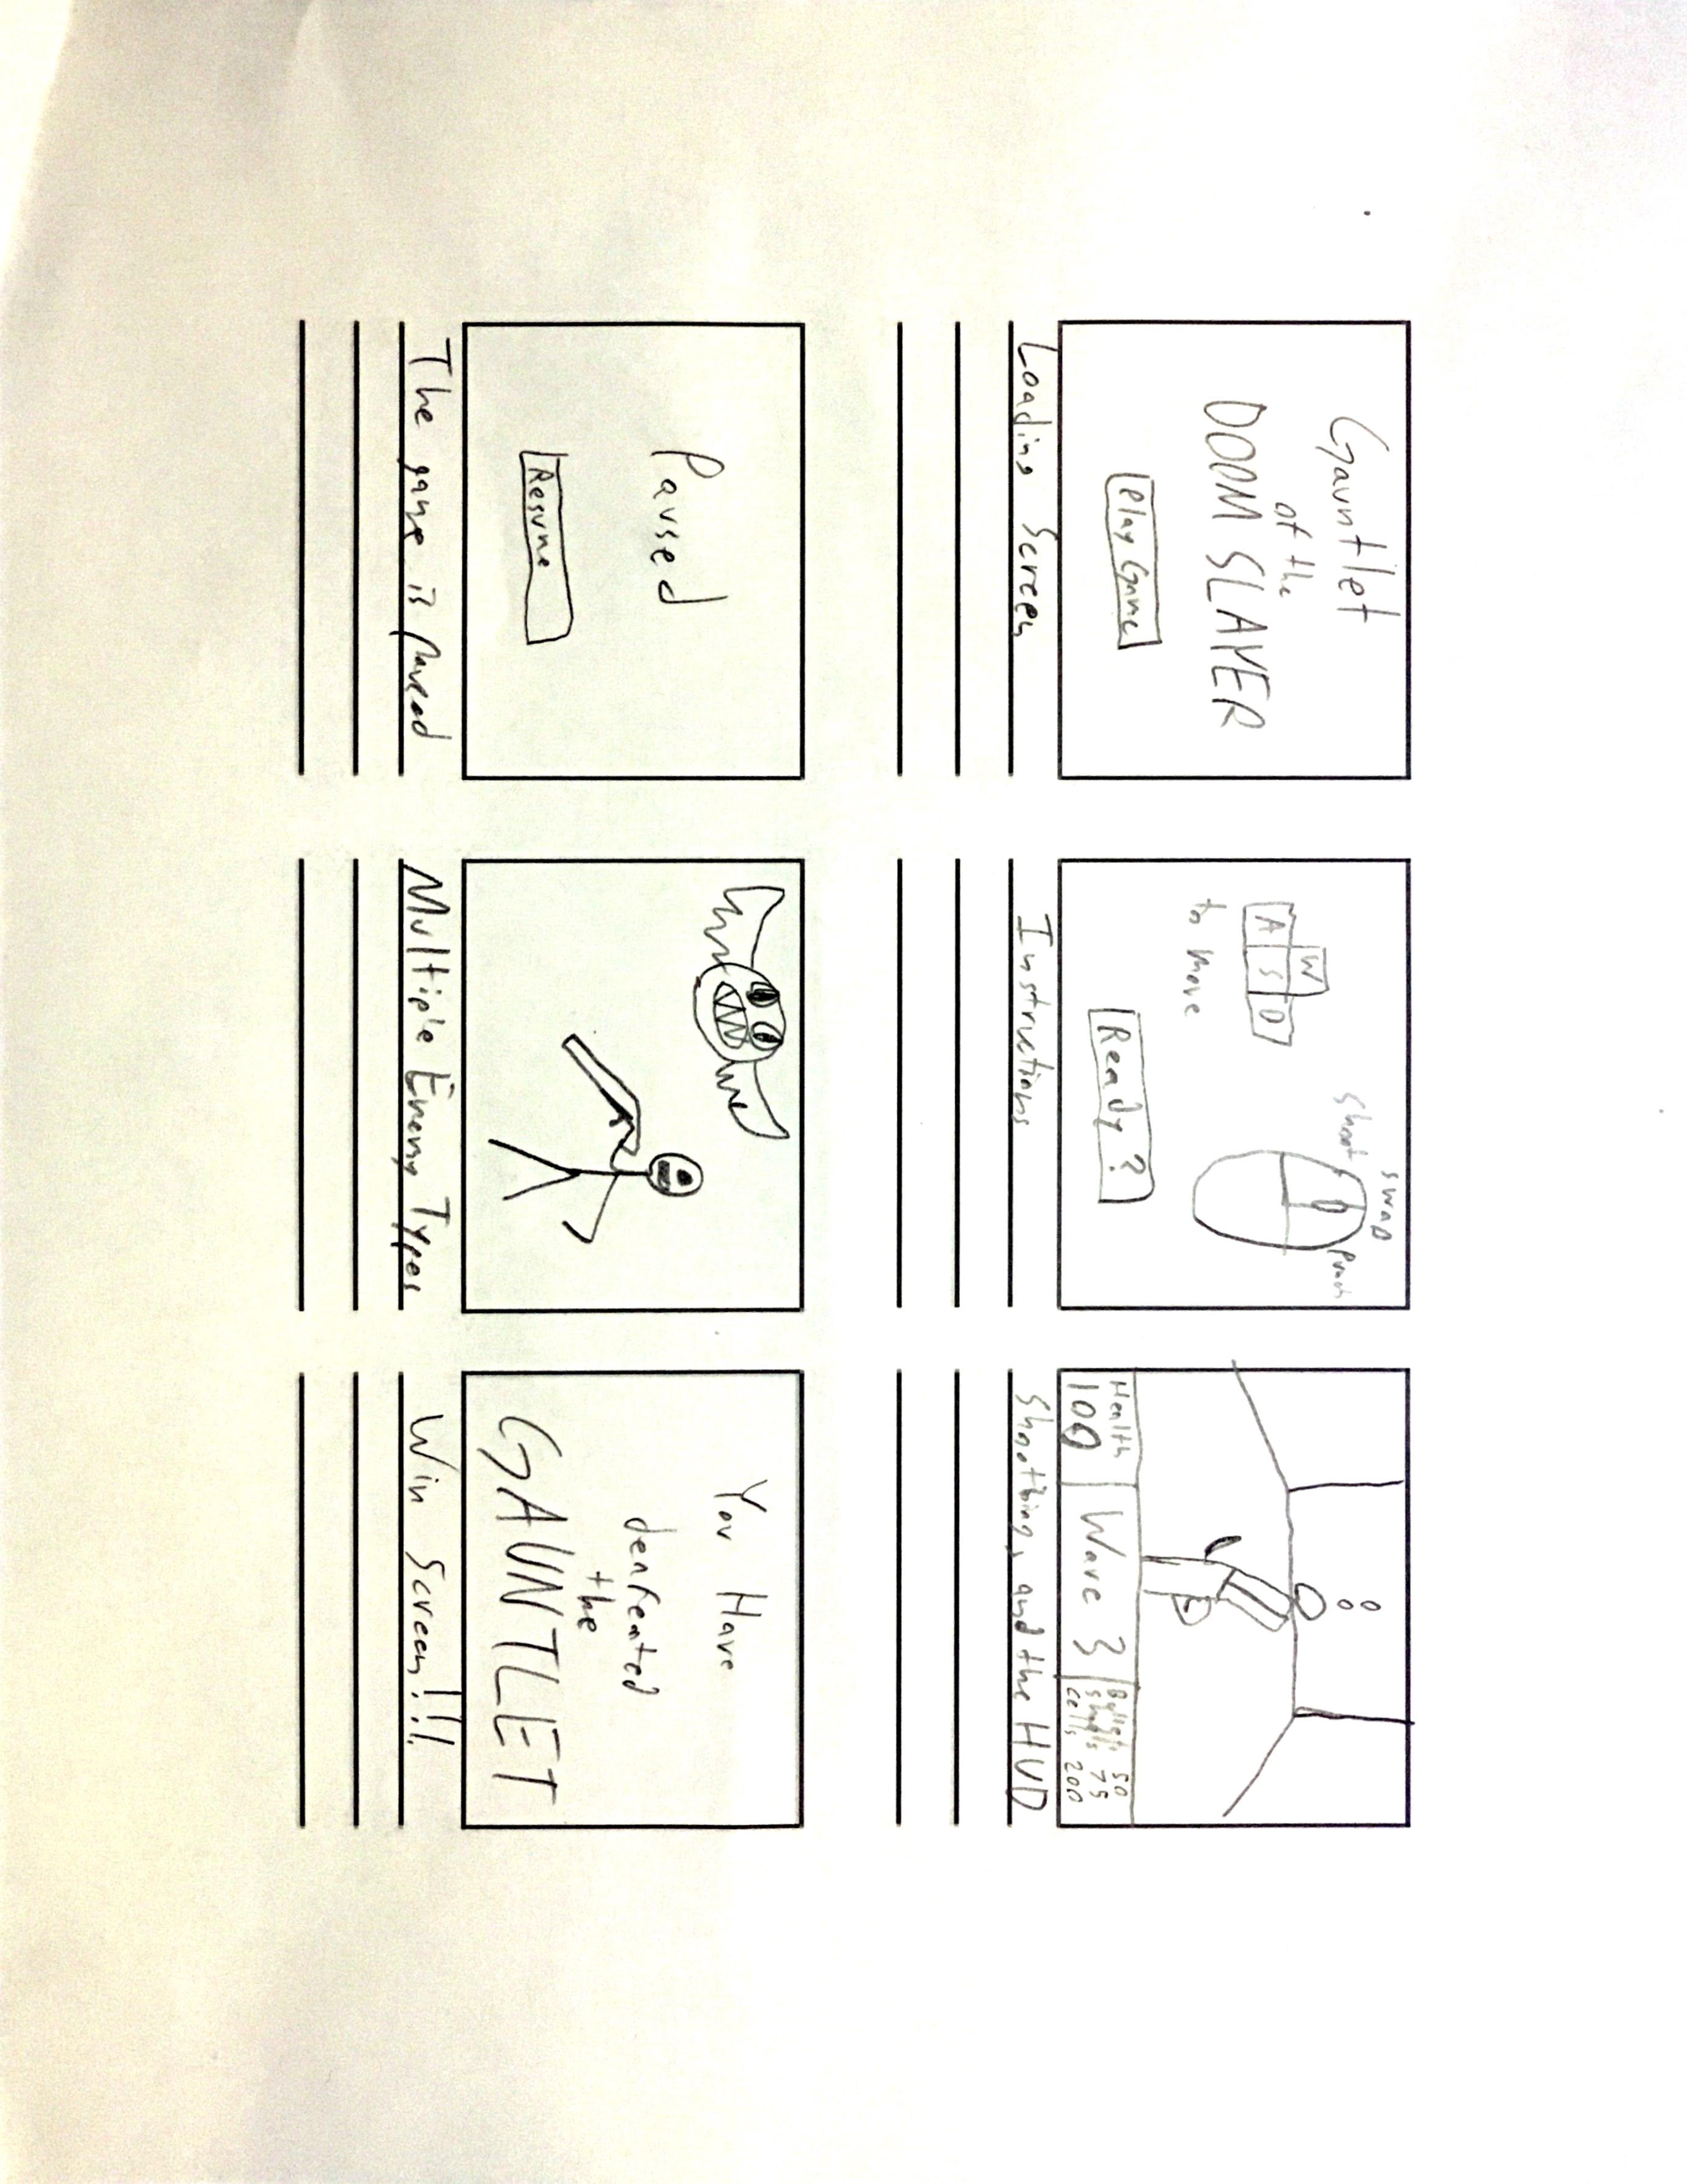 Gauntlet
of the
DOOM SLAYER
Play Game
Loading Screen
W
A S D
to Move
Shoot
swap
Punch
Ready?
Instructions
Health
100
Wave 3
Bullets 50
Shells 75
cells 200
Shooting, and the HUD
Paused
Resume
The game is Paused
Multiple Enemy Types
You Have
denfeated
the
GAUNTLET
Win Screen!!!